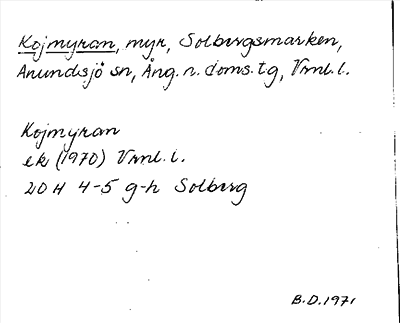 Kojmyran, myr, Solbergsmarken,
Anundsjö sn, Ång. n. doms. tg, Vrnl. l.
Kojmyran
ek (1970) Vrnl. l.
20 H 4-5 g-h Solberg
B.D. 1971